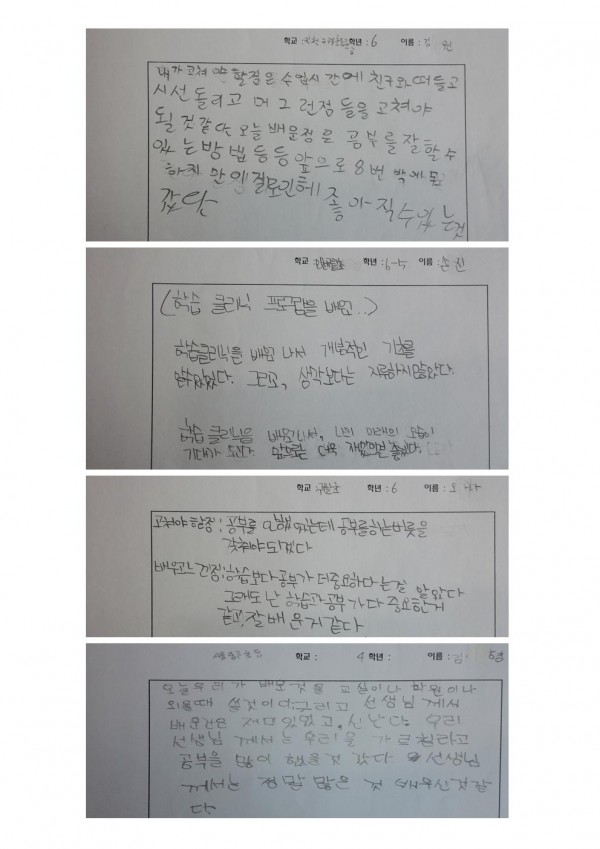 학교 : 학년 : 6 이름 : 김 원
내가 고쳐야 할점은 수업시간에 친구와 떠들고
시선 돌리고 머 그런점 들을 고쳐야
될것 같다 오늘 배운점은 공부를 잘할 수
있는 방법 등등 앞으로 8번 밖에 못
하지만 이걸로인해 좋아 직수있는것
같다
학교 : 학년 : 6-5 이름 : 손 진
(학습 클리닉 프로그램을 배운..)
학습클리닉을 배우 나서 개념적인 기초를
알수있었다. 그리고, 생각보다는 지루하지않았다.
학습 클리닉을 배우고나서, 나의 미래의 모습이
기대가 되었고 앞으로는 더욱 재밌으면 좋겠다.
학교 : 학년 : 6 이름 : 오
고쳐야 할점 : 공부를 안해 있는데 공부를하는버릇을
갖춰야되겠다
배우고느낀점:학습보다공부가 더중요하다 는걸 알았다
그래도 난 학습과공부가다 중요한거
같고,잘배운거같다
학교 : 4 학년 : 이름 : 김
오늘우리가 배운것을 교실이나 학원이나
외울때 쓸것이다.그리고 선생님께서
배운건은 재미있었고, 신난다. 우리
선생님 께서는 우리를 가르칠라고
공부을 많이 했을것 같다 선생님
께서는 정말 많은 것 배우신것같
다.